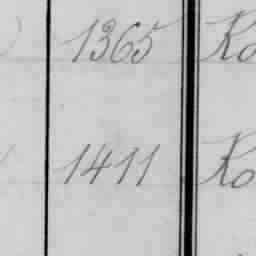 1365 Ko
1411 Ko